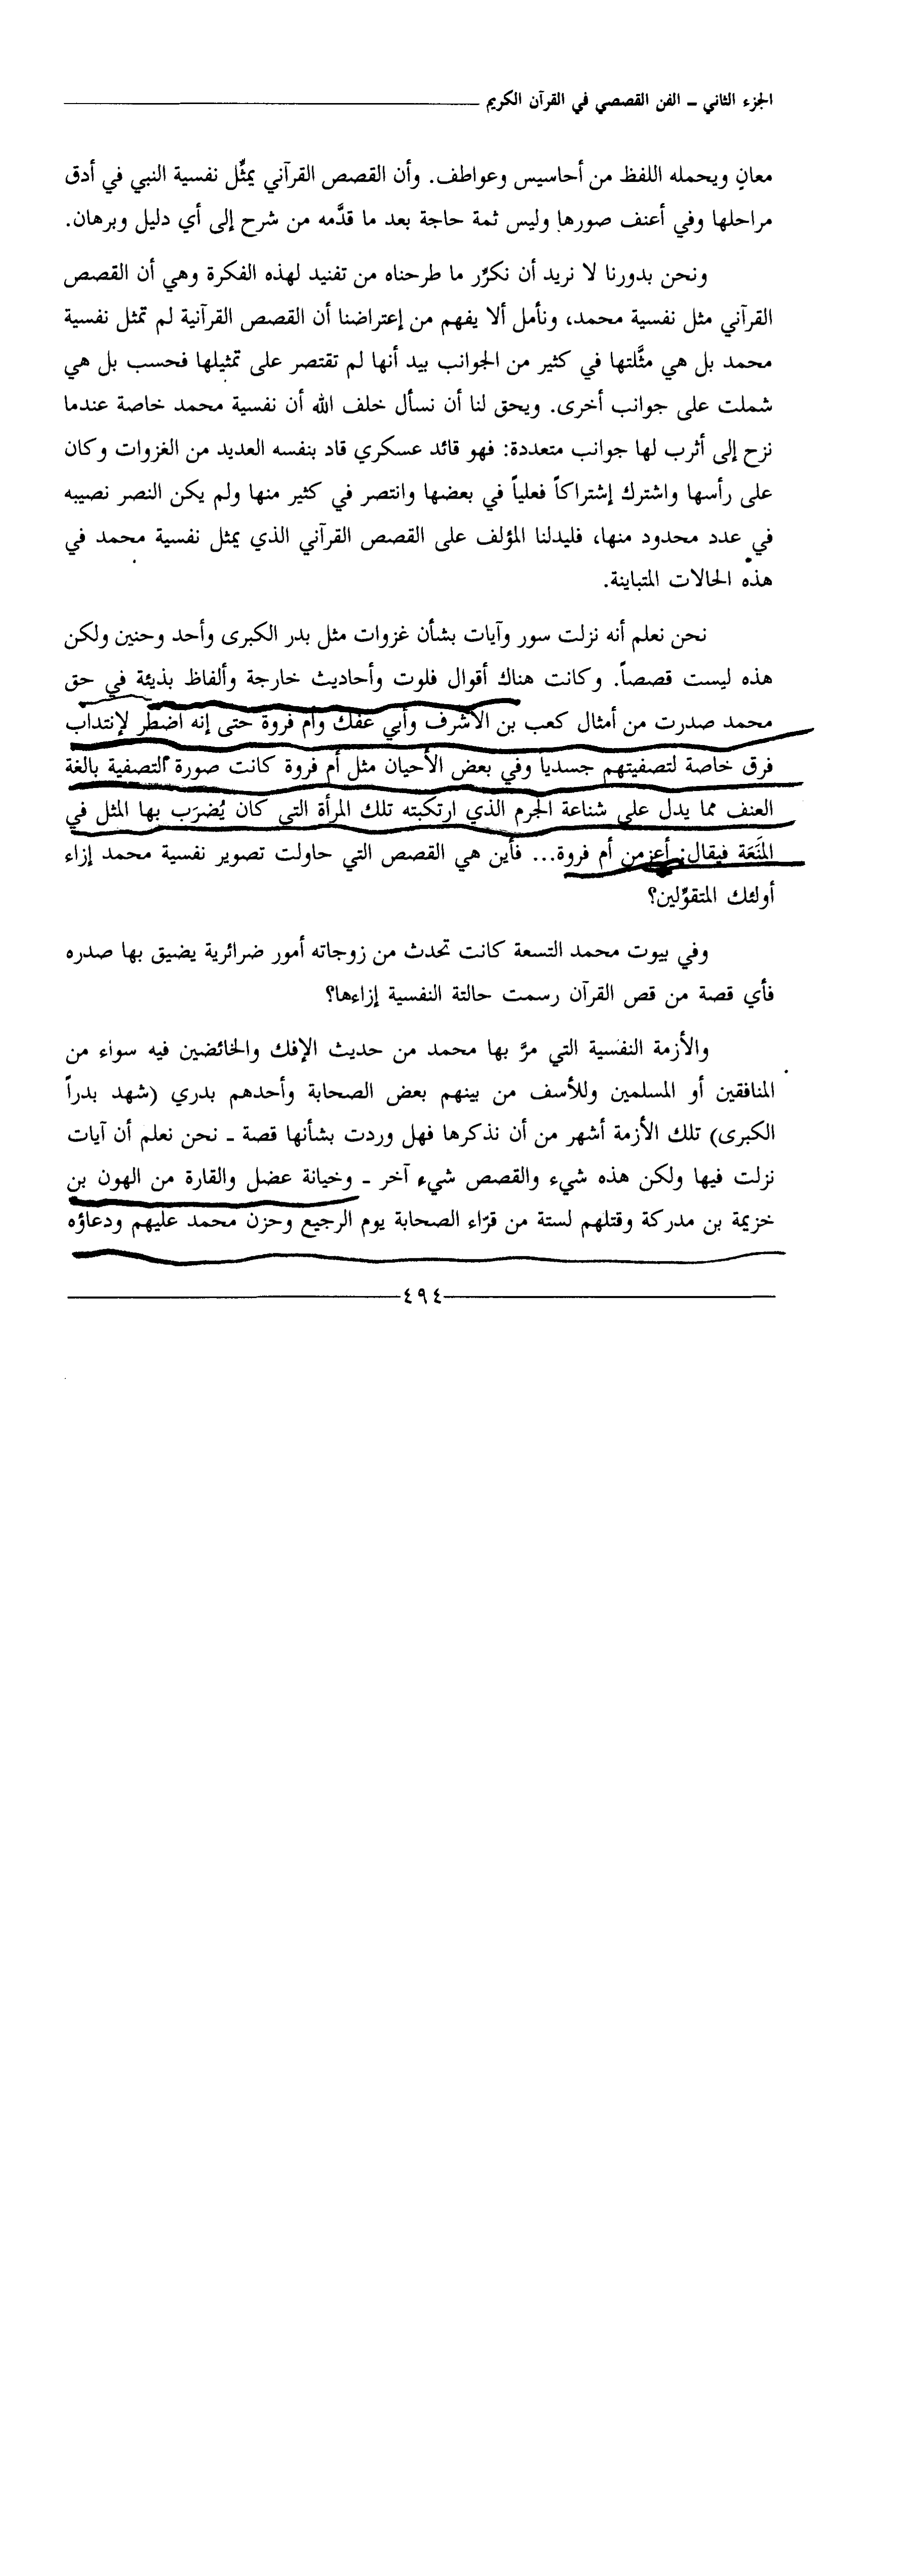 الجزء الثاني ــ الفن القصصي في القرآن الكريم
معانٍ ويحمله اللفظ من أحاسيس وعواطف. وأن القصص القرآني يمثِّل نفسية النبي في أدق
مراحلها وفي أعنف صورها وليس ثمة حاجة بعد ما قدَّمه من شرح إلى أي دليل وبرهان.
ونحن بدورنا لا نريد أن نكرِّر ما طرحناه من تفنيد لهذه الفكرة وهي أن القصص
القرآني مثل نفسية محمد، ونأمل ألا يفهم من إعتراضنا أن القصص القرآنية لم تمثل نفسية
محمد بل هي مثَّلتها في كثير من الجوانب بيد أنها لم تقتصر على تمثيلها فحسب بل هي
شملت على جوانب أخرى. ويحق لنا أن نسأل خلف الله أن نفسية محمد خاصة عندما
نزح إلى أثرب لها جوانب متعددة: فهو قائد عسكري قاد بنفسه العديد من الغزوات وكان
على رأسها واشترك إشتراكاً فعلياً في بعضها وانتصر في كثير منها ولم يكن النصر نصيبه
في عدد محدود منها، فليدلنا المؤلف على القصص القرآني الذي يمثل نفسية محمد في
هذه الحالات المتباينة.
نحن نعلم أنه نزلت سور وآيات بشأن غزوات مثل بدر الكبرى وأحد وحنين ولكن
هذه ليست قصصاً. وكانت هناك أقوال فلوت وأحاديث خارجة وألفاظ بذيئة في حق
محمد صدرت من أمثال كعب بن الأشرف وأبي عفك وأم فروة حتى إنه اضطر لإنتداب
فرق خاصة لتصفيتهم جسدياً وفي بعض الأحيان مثل أم فروة كانت صورة التصفية بالغة
العنف مما يدل على شناعة الجرم الذي ارتكبته تلك المرأة التي كان يُضرَب بها المثل في
المَنَعَة فيقال: أعزمن أم فروة... فأين هي القصص التي حاولت تصوير نفسية محمد إزاء
أولئك المتقوِّلين؟
وفي بيوت محمد التسعة كانت تحدث من زوجاته أمور ضرائرية يضيق بها صدره
فأي قصة من قص القرآن رسمت حالتة النفسية إزاءها؟
والأزمة النفسية التي مرَّ بها محمد من حديث الإفك والخائضين فيه سواء من
المنافقين أو المسلمين وللأسف من بينهم بعض الصحابة وأحدهم بدري (شهد بدراً
الكبرى) تلك الأزمة أشهر من أن نذكرها فهل وردت بشأنها قصة ــ نحن نعلم أن آيات
نزلت فيها ولكن هذه شيء والقصص شيء آخر ــ وخيانة عضل والقارة من الهون بن
خزيمة بن مدركة وقتلهم لستة من قرّاء الصحابة يوم الرجيع وحزن محمد عليهم ودعاؤه
٤٩٤